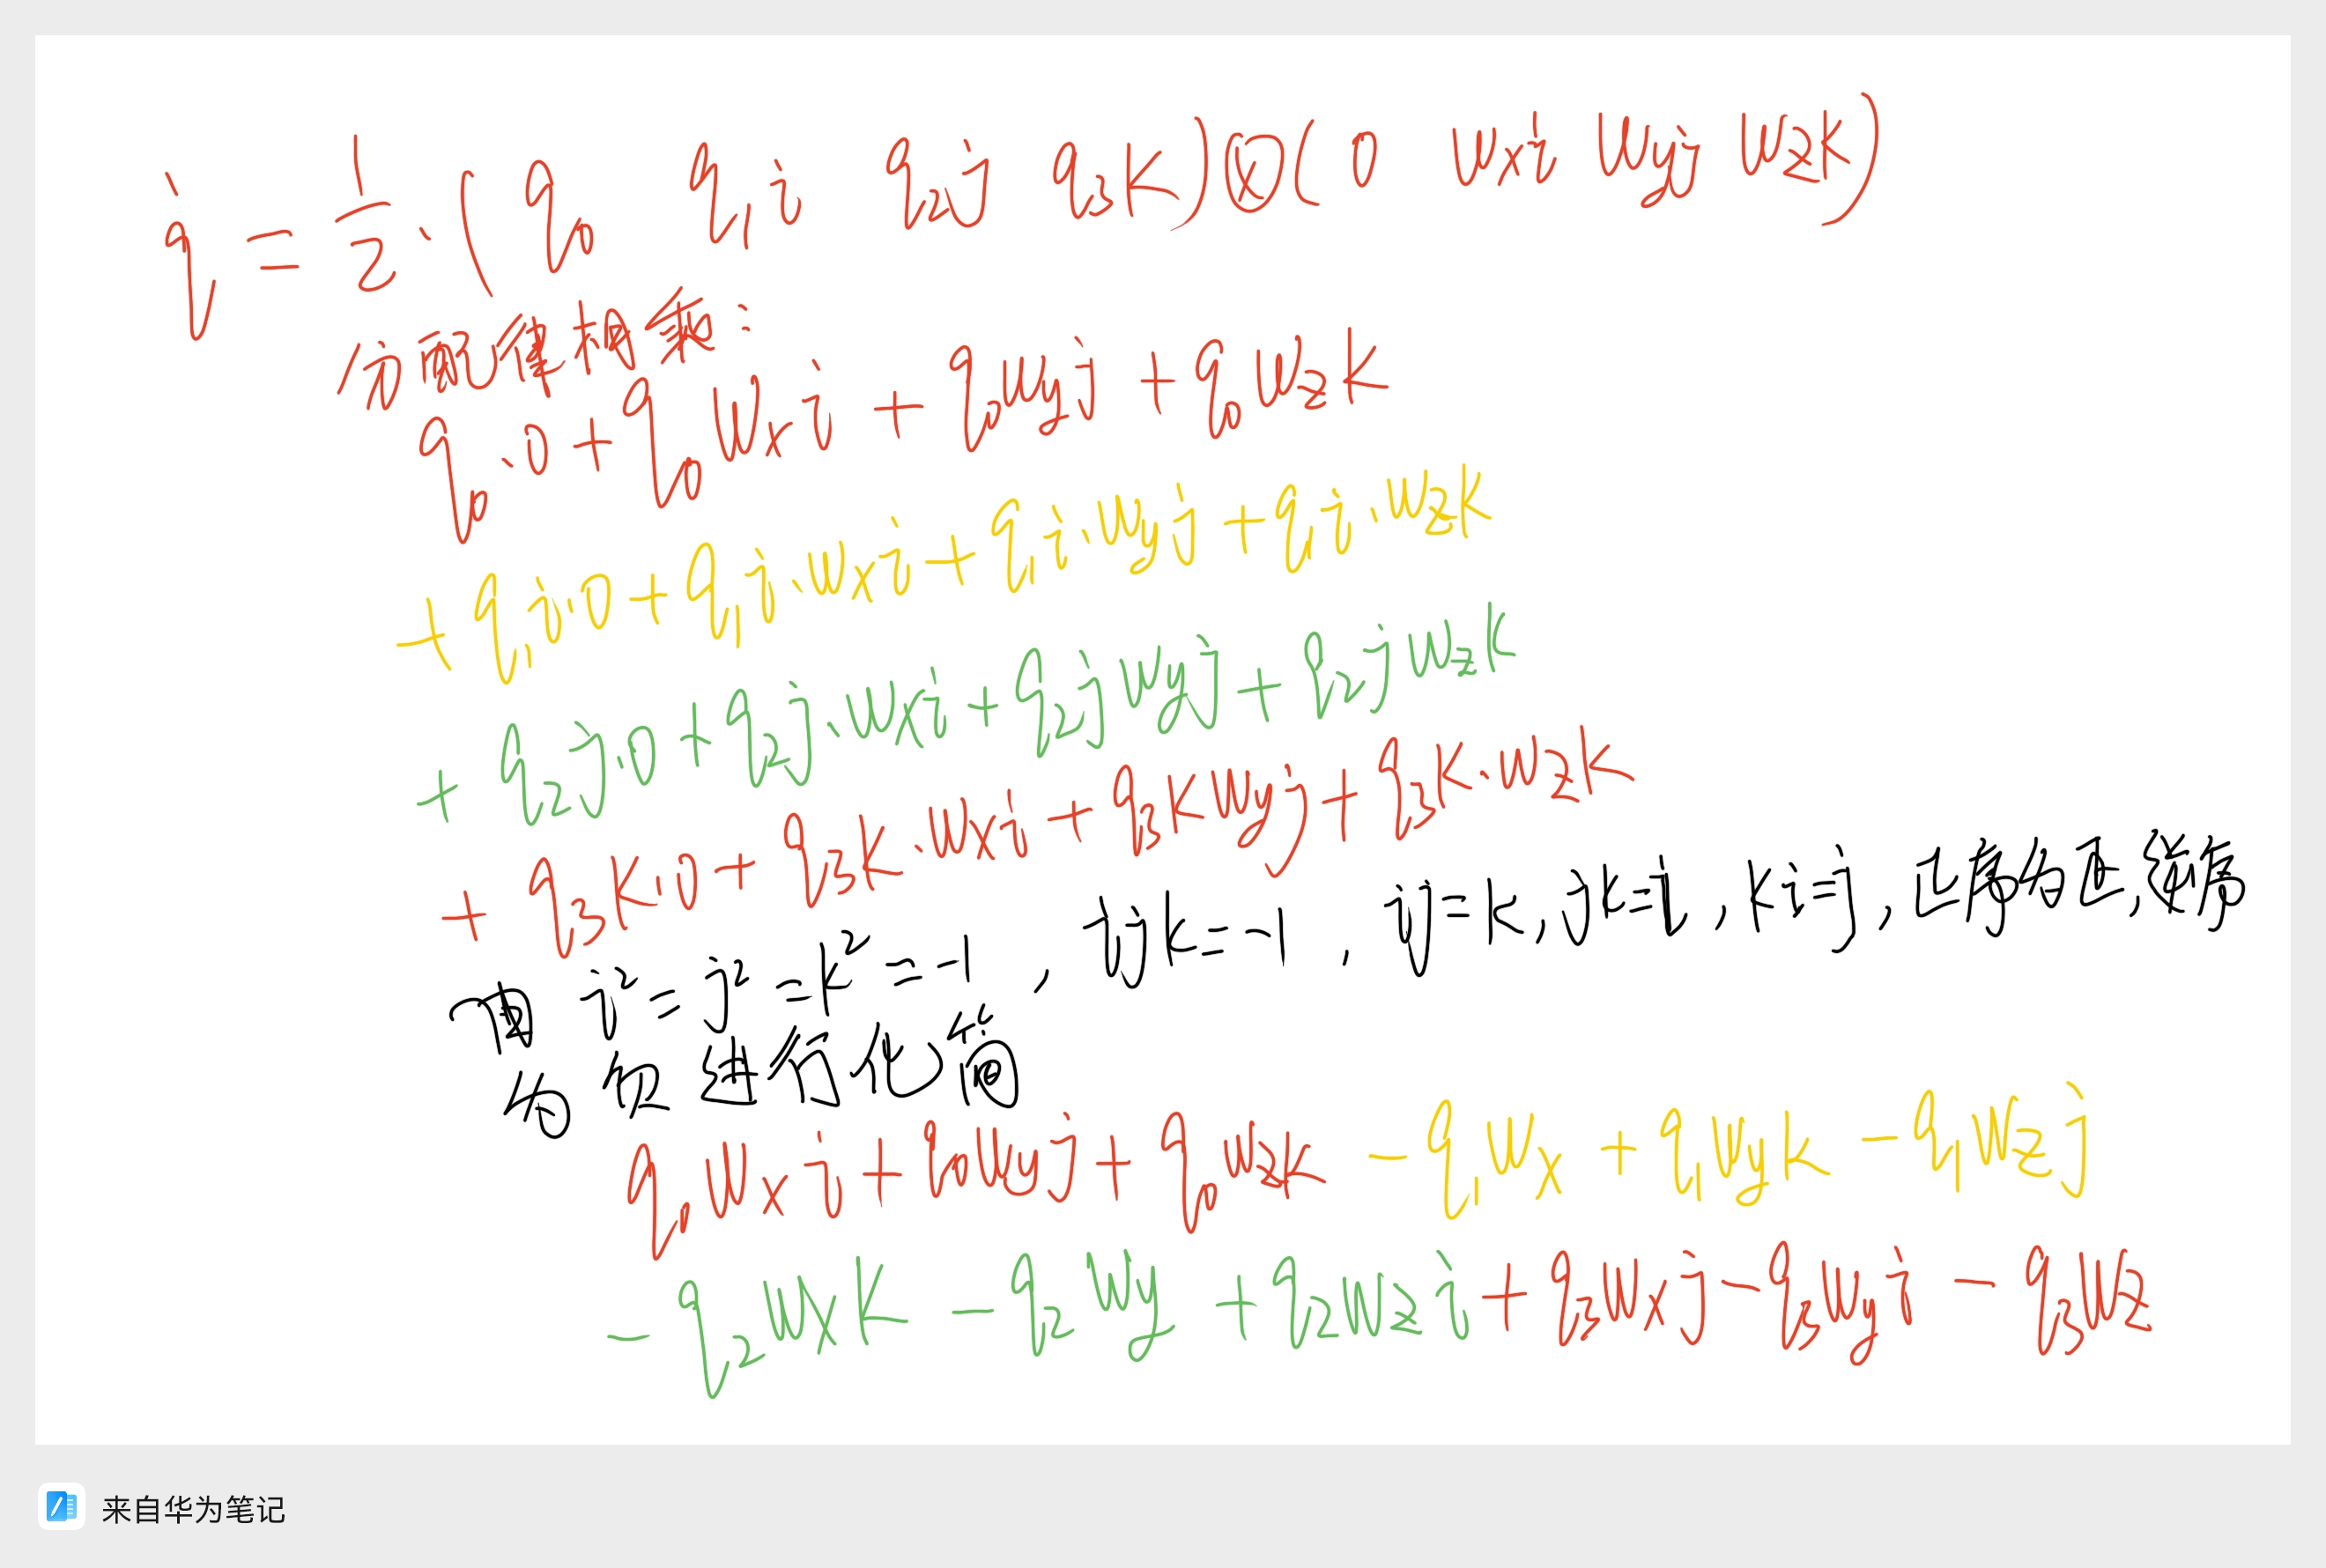 q̇ = 1/2·(q₀ q₁i q₂j q₃k)⊗(0 wₓi w_yj w_zk)
分配律相乘:
q₀·0+q₀wₓi+q₀w_yj+q₀w_zk
+q₁i·0+q₁i·wₓi+q₁i·w_yj+q₁i·w_zk
+q₂j·0+q₂j·wₓi+q₂jw_yj+q₂jw_zk
+q₃k·0+q₃k·wₓi+q₃kw_yj+q₃k·w_zk
由 i²=j²=k²=-1, ijk=-1, ij=k, jk=i, ki=j, 正序为正, 逆序
为负进行化简
q₀wₓi+q₀w_yj+q₀w_zk -q₁wₓ+q₁w_yk-q₁w_zj
-q₂wₓk-q₂w_y+q₂w_zi+q₃wₓj-q₃w_yi-q₃w_z
来自华为笔记